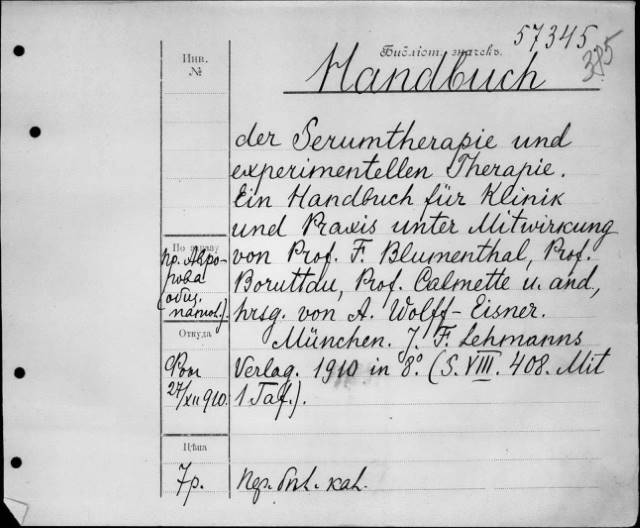 57345
375
Инв.
№
Библіот. значекъ.
Handbuch
der Serumtherapie und
experimentellen Therapie.
Ein Handbuch für Klinik
und Praxis unter Mitwirkung
По заказу
пр. Авро-
рова
(общ.
патол.).
von Prof. F. Blumenthal, Prof.
Boruttau, Prof. Calmette u. and,
hrsg. von A. Wolff-Eisner.
München. J. F. Lehmanns
Verlag. 1910 in 8º. (S. VIII. 408. Mit
1 Taf.).
Откуда
27/XII 910.
Цѣна
7р.
Пер. бпл. кал.